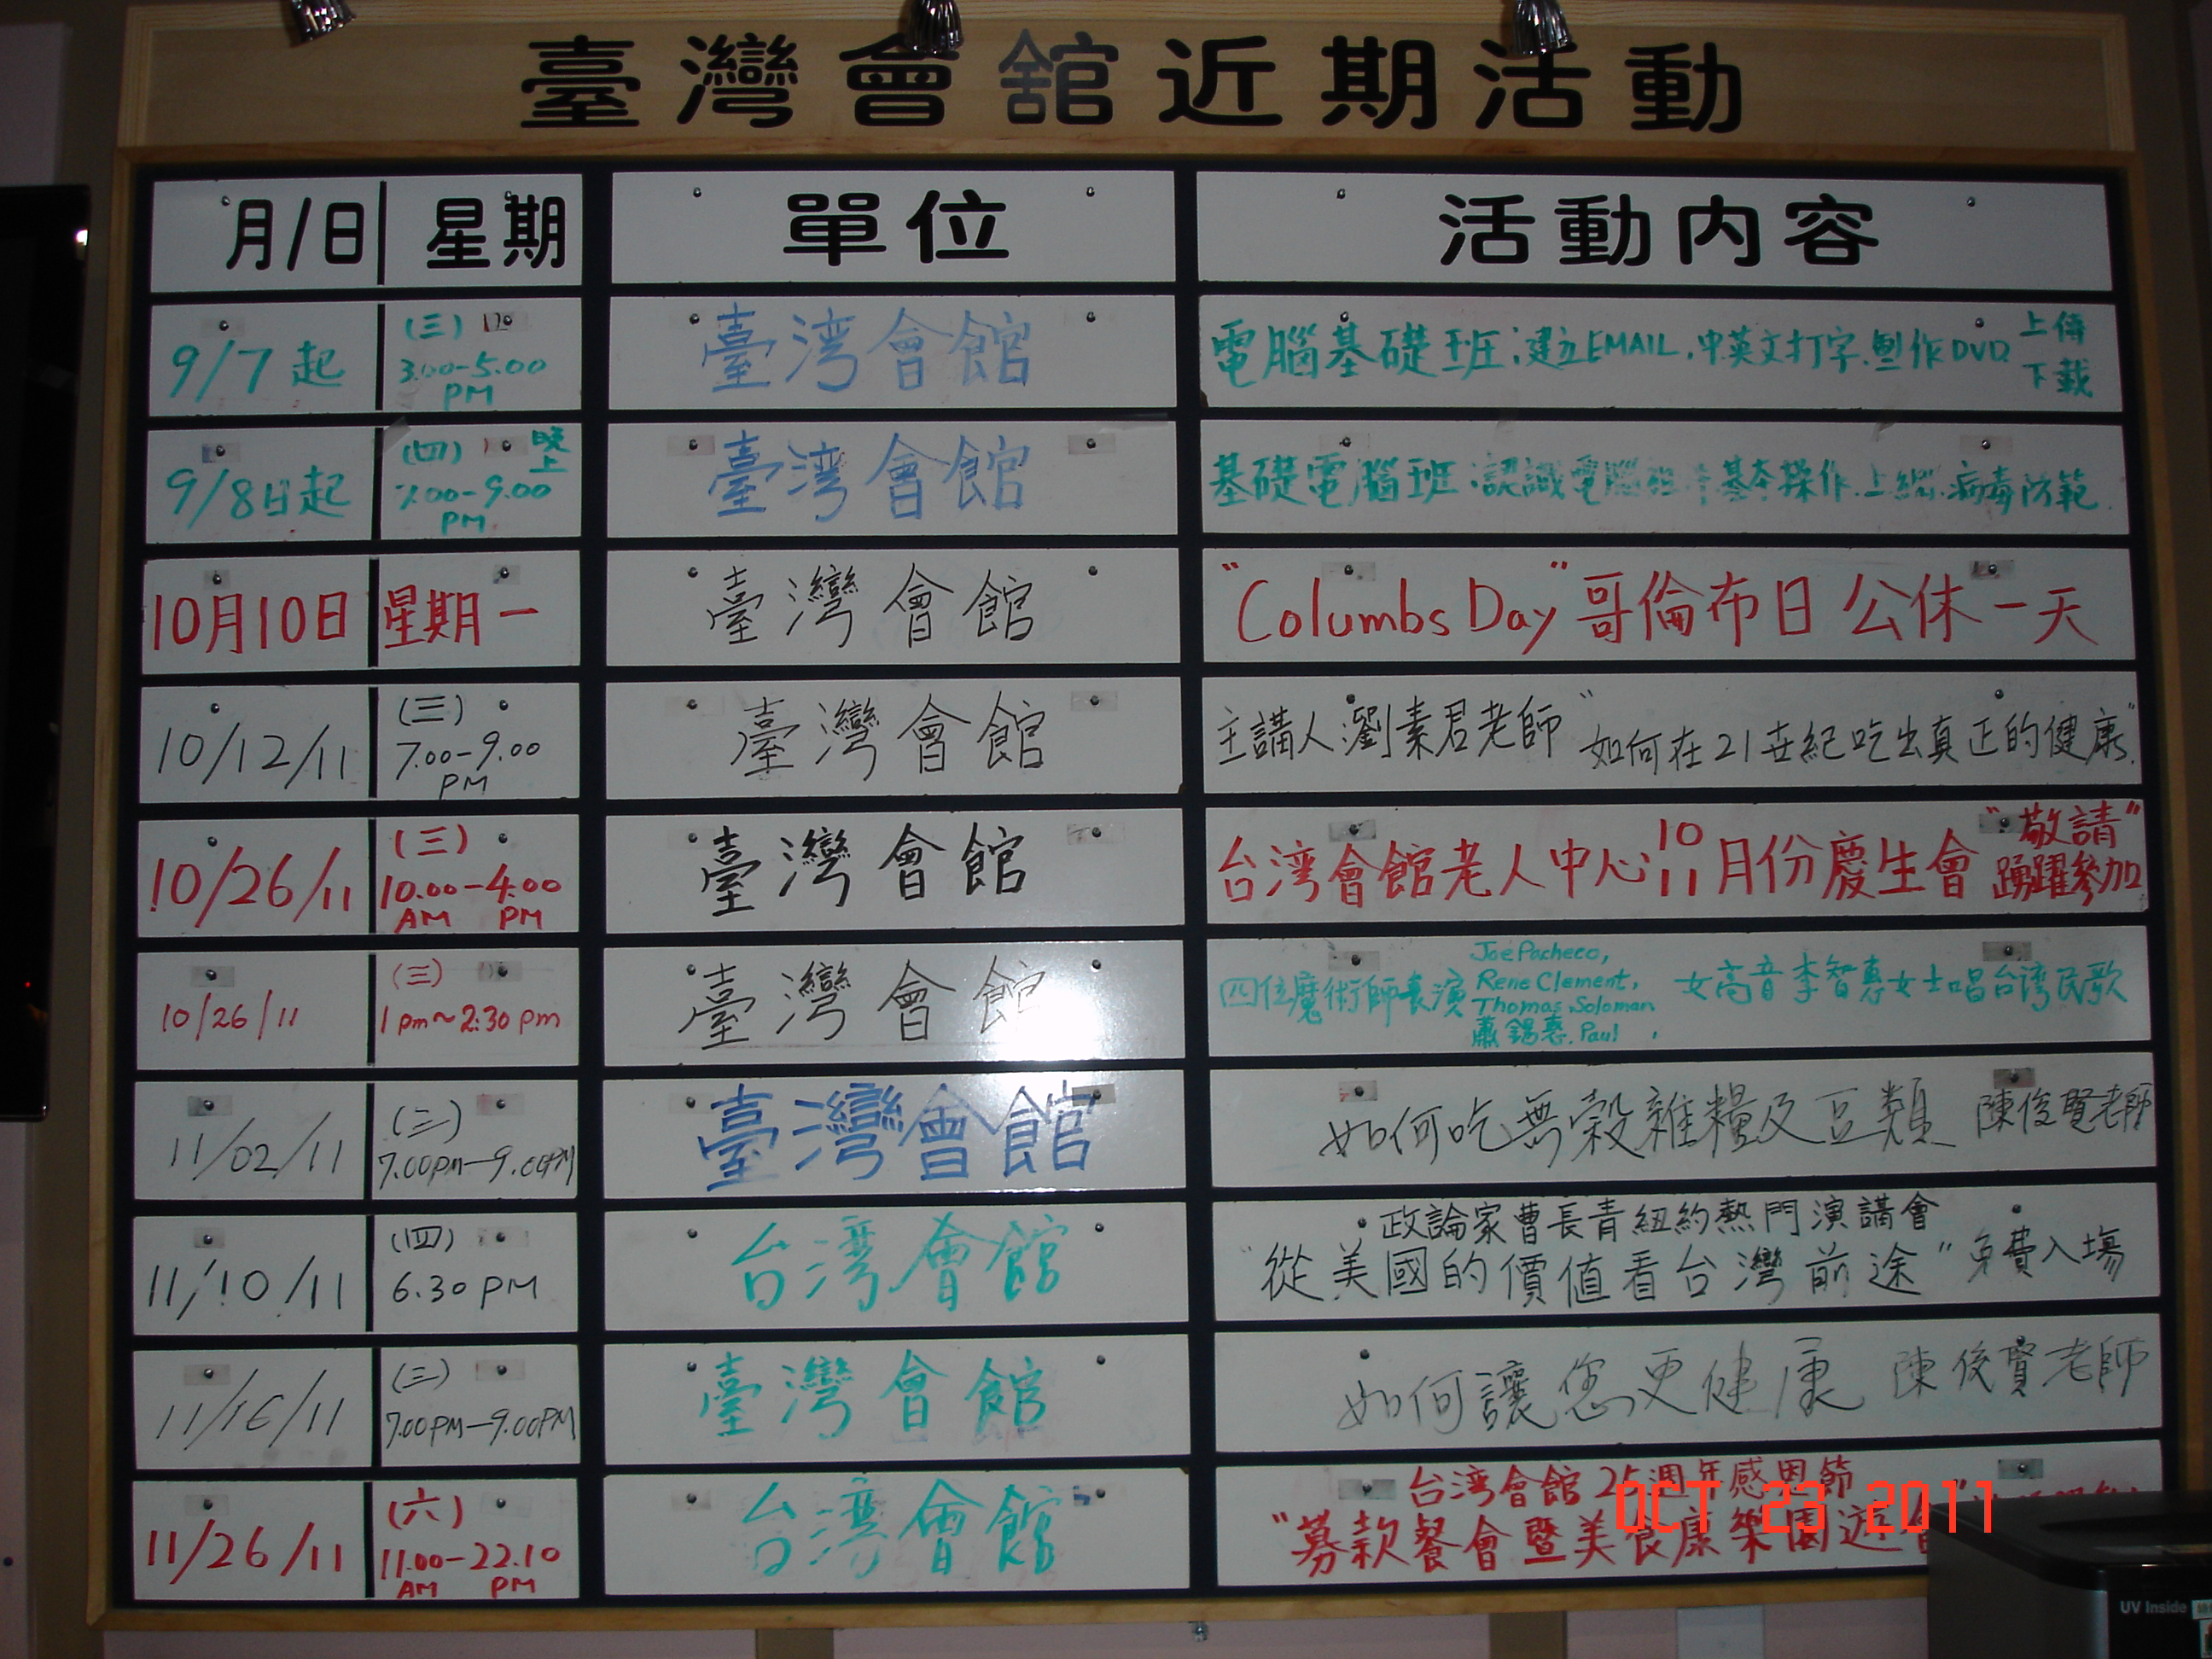 臺灣會舘近期活動
月/日 星期 單位 活動内容
9/7起 (三) 3.00-5.00 PM 臺湾會館 電腦基礎班:建立EMAIL.中英文打字.製作DVD 上傳下載
9/8日起 (四) 晚上 7.00-9.00 PM 臺湾會館 基礎電腦班:認識電腦 基本操作.上網.病毒防範.
10月10日 星期一 臺灣會館 "Columbs Day"哥倫布日 公休一天
10/12/11 (三) 7.00-9.00 PM 臺灣會館 主講人:劉素君老師 "如何在21世紀吃出真正的健康".
10/26/11 (三) 10.00-4.00 AM PM 臺灣會館 台湾會館老人中心:10 11月份慶生會 "敬請" 踴躍參加
10/26/11 (三) 1pm~2:30pm 臺灣會館 四位魔術師表演 Joe Pacheco, Rene Clement, Thomas Soloman 蕭錫惠. Paul , 女高音李智惠女士唱台湾民歌
11/02/11 (三) 7.00PM-9.00PM 臺灣會館 如何吃無穀雜糧及豆類 陳俊賢老師
11/10/11 (四) 6.30PM 台湾會館 政論家曹長青紐約熱門演講會
"從美國的價值看台灣前途" 免費入場
11/16/11 (三) 7.00PM-9.00PM 臺灣會館 如何讓您更健康 陳俊賢老師
11/26/11 (六) 11.00-22.10 AM PM 台湾會館 台湾會館25週年感恩節
"募款餐會暨美食康樂園遊會"
OCT 23 2011
UV Inside